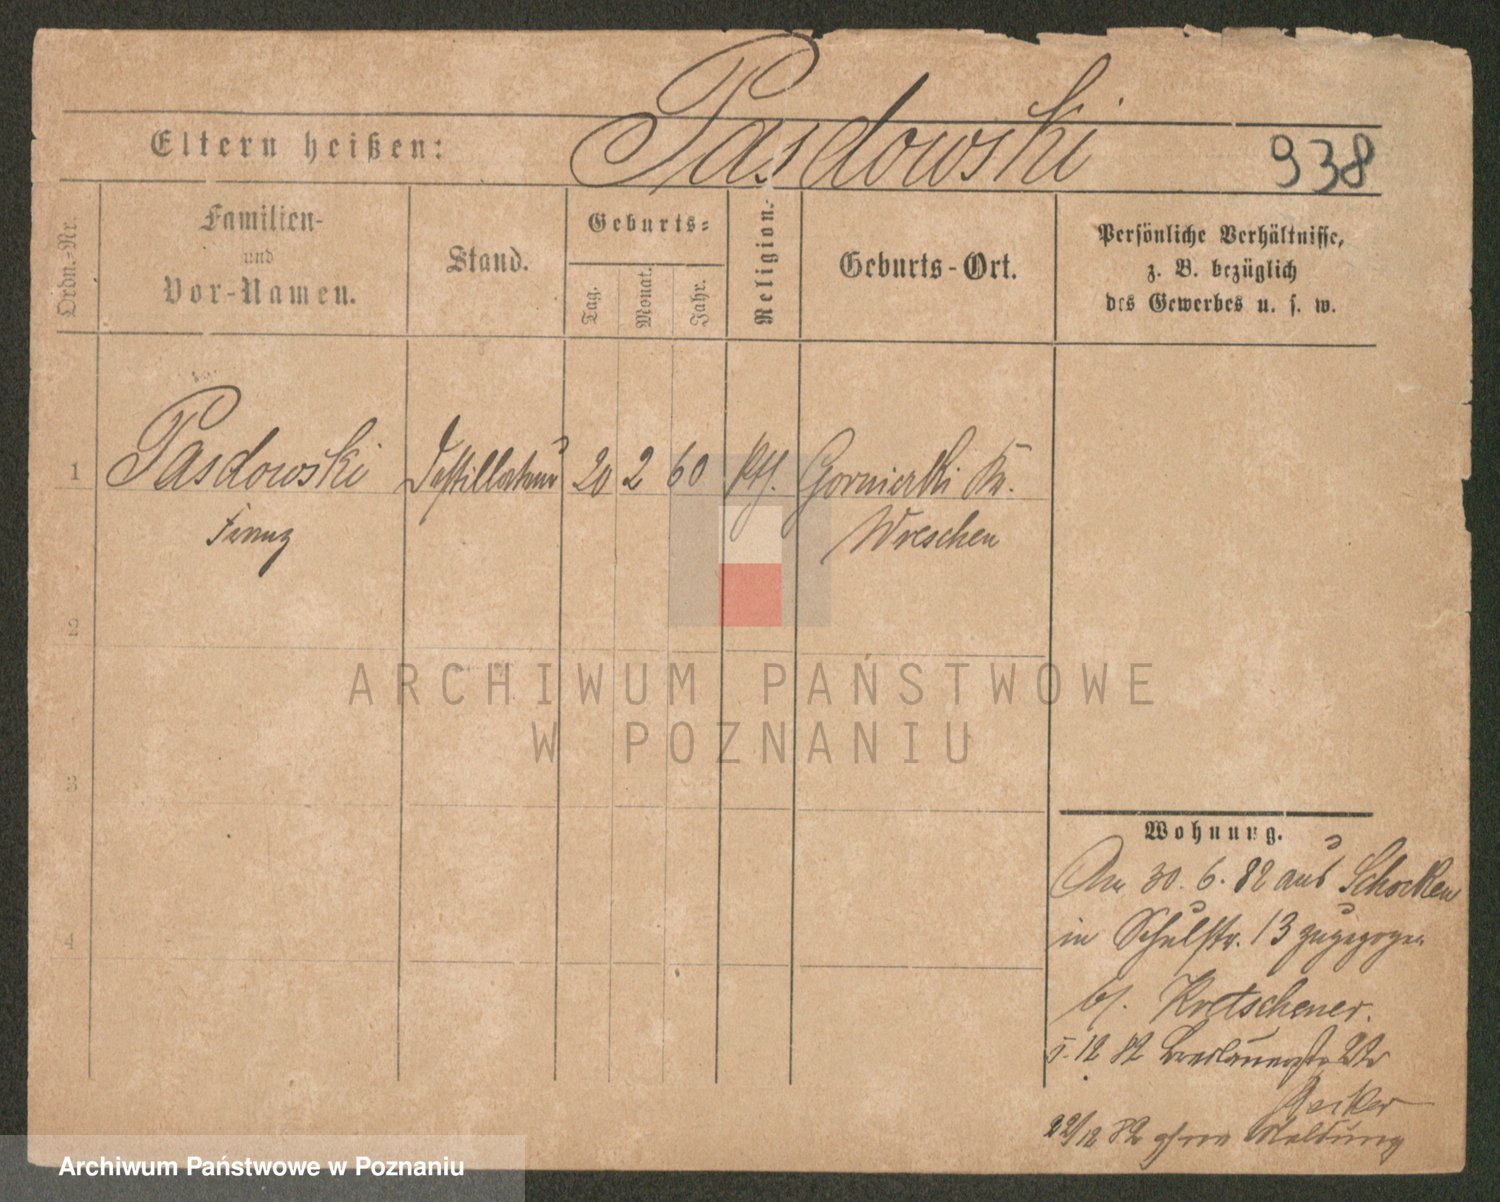 Pasdowski
Eltern heißen:
938
Ordn.-Nr.
Familien-
und
Vor-Namen.
Stand.
Geburts-
Tag.
Monat.
Jahr.
Religion.
Geburts-Ort.
Persönliche Verhältnisse,
z. B. bezüglich
des Gewerbes u. s. w.
1
Pasdowski
Destillateur
20
2
60
kth.
Gorniertki Kr.
Franz
Wreschen
2
3
4
ARCHIWUM PAŃSTWOWE
W POZNANIU
Wohnung.
Am 30. 6. 82 aus Schocken
in Schulstr. 13 zugezogen
bf. Kretschener.
5. 12 82 Breslauerstr
22/12 82 ohne Meldung
Archiwum Państwowe w Poznaniu